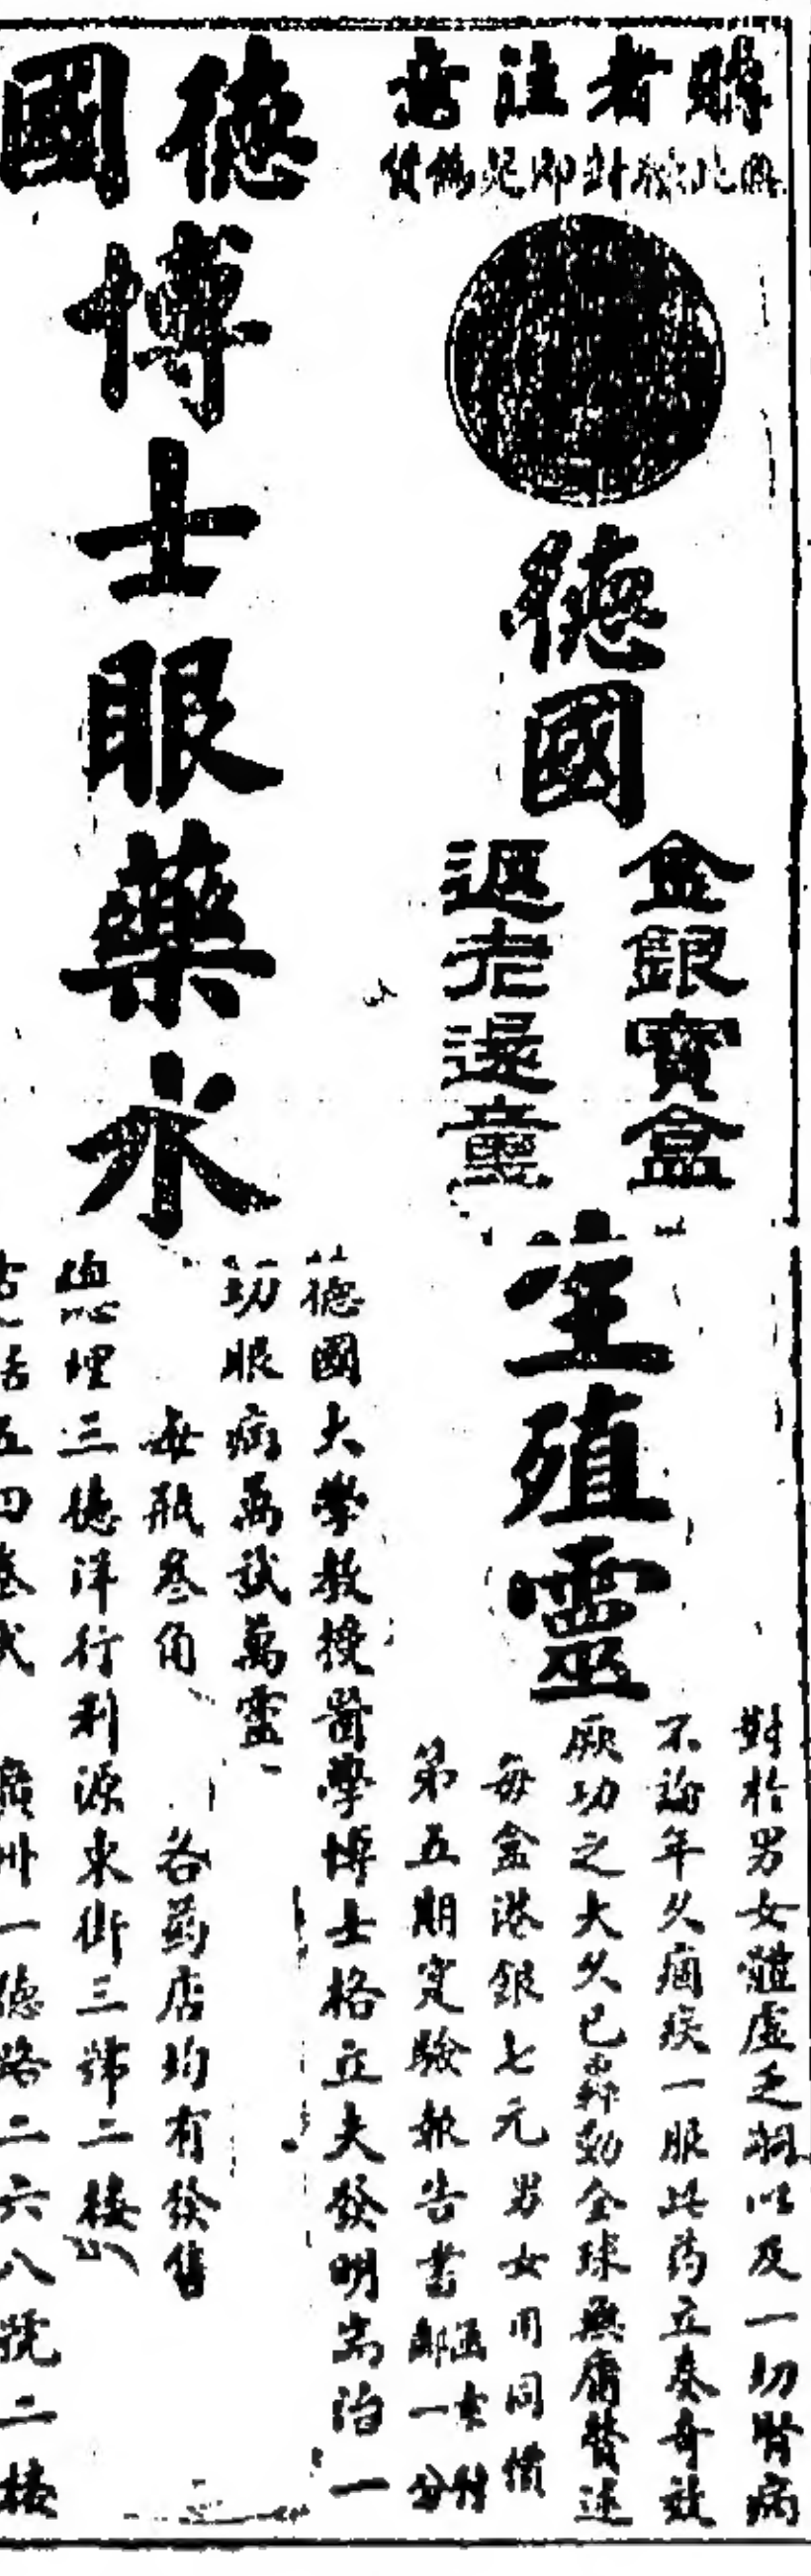 購者注意
與此欵對即是偽貨
德國
金銀寶盒
返老還童
生殖靈
對於男女體虛乏弱以及一切腎病
不論年久痼疾一服此药立奏奇效
厥功之大久已轟動全球無庸贅述
每盒港銀七元男女用同價
第五期寔驗報告書函索付郵一分
德國
博士眼藥水
德國大學教授醫學博士格立夫發明耑治一
切眼病萬試萬靈
每瓶叁角 各葯店均有發售
總理三德洋行利源東街三號二樓
話五四叁弍 廣州一德路二六八號二樓